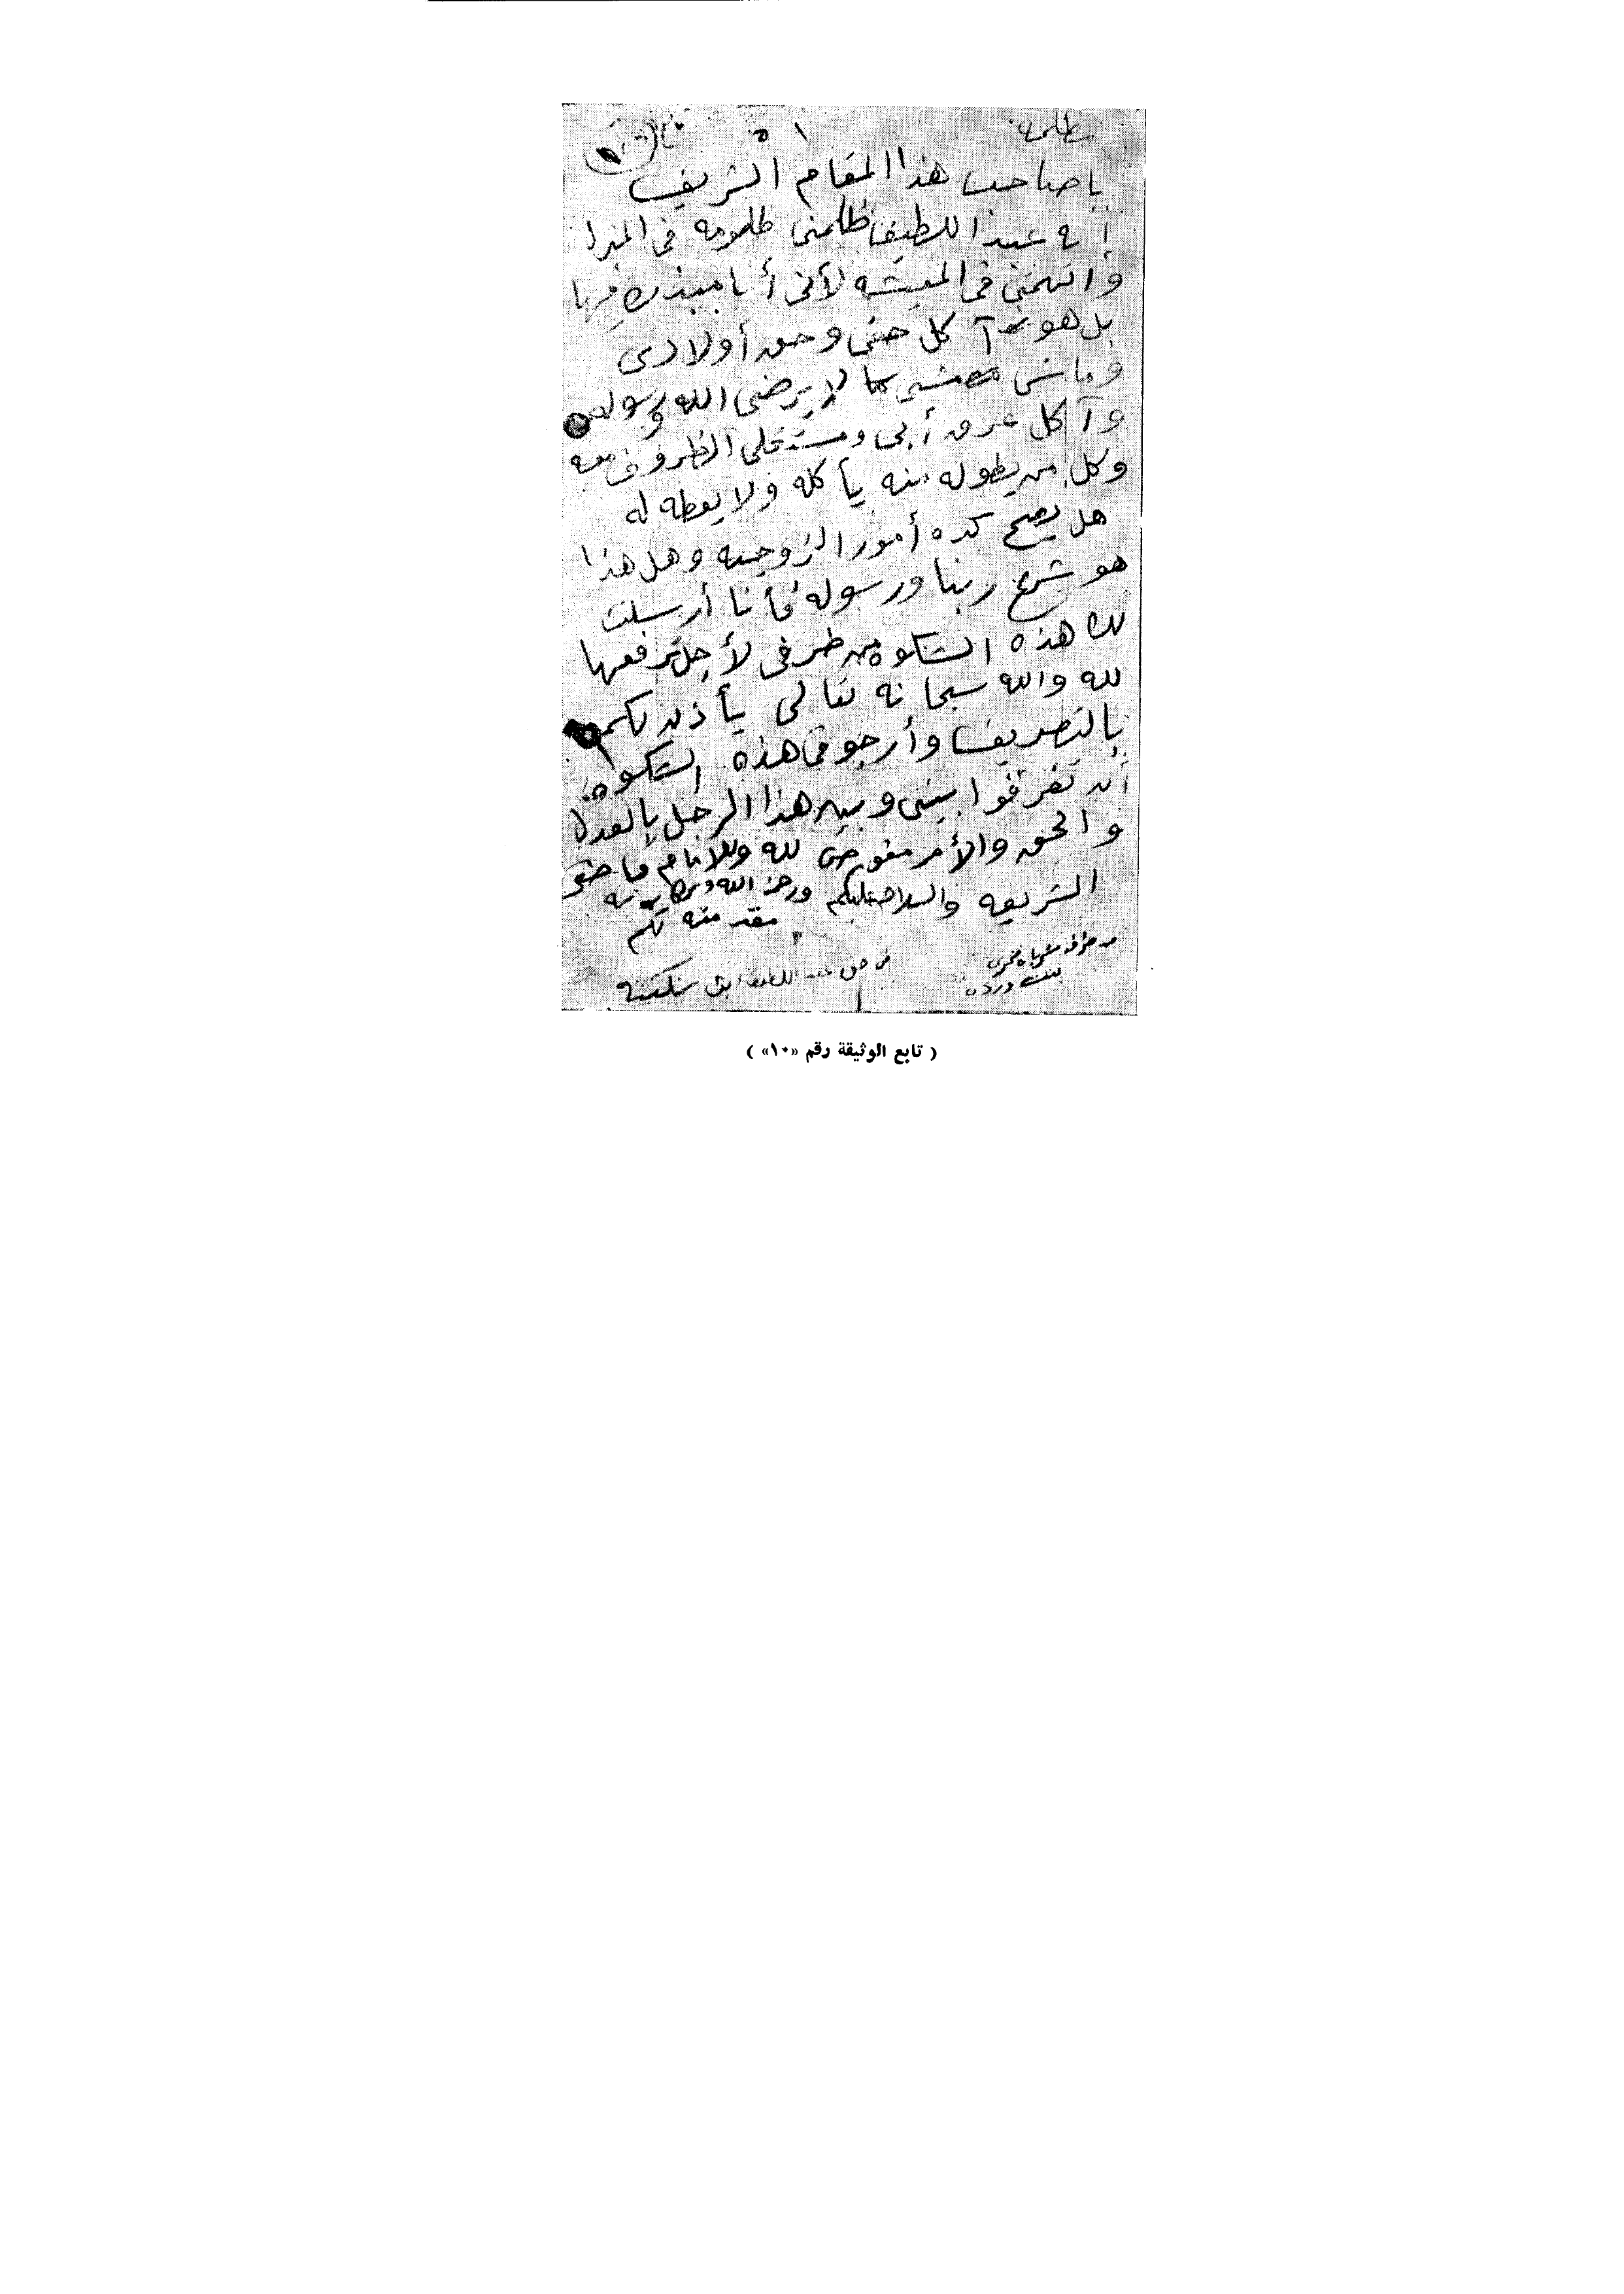 مظلمة
يا صاحب هذا المقام الشريف
إنه عبد اللطيف ظلمنى ظلومه فى المنزل
واتهمنى فى المعيشه لأنى أنا مبذره فيها
بل هو آكل حقى وحق أولادى
وماشى مشى لا يرضى الله ورسوله
وآكل عرق أبى ومستحلى الظروف معه
وكل من يطوله منه يأكله ولا يعطه له
هل يصح كده أمور الزوجيه وهل هذا
هو شرع ربنا ورسوله فأنا أرسلت
لك هذه الشكوه من طرفى لأجل ترفعها
لله والله سبحانه تعالى يأذن لكم
بالتصريف وأرجو فى هذه الشكوه
أن تفرقوا بينى وبين هذا الرجل بالعدل
والحق والأمر مفوض لله وللامام قاضى
الشريعه والسلام عليكم ورحمة الله وبركاته
مقدمته لكم
من طرف
بنت
فى حق عبد اللطيف ابن سكينه
( تابع الوثيقة رقم «١٠» )